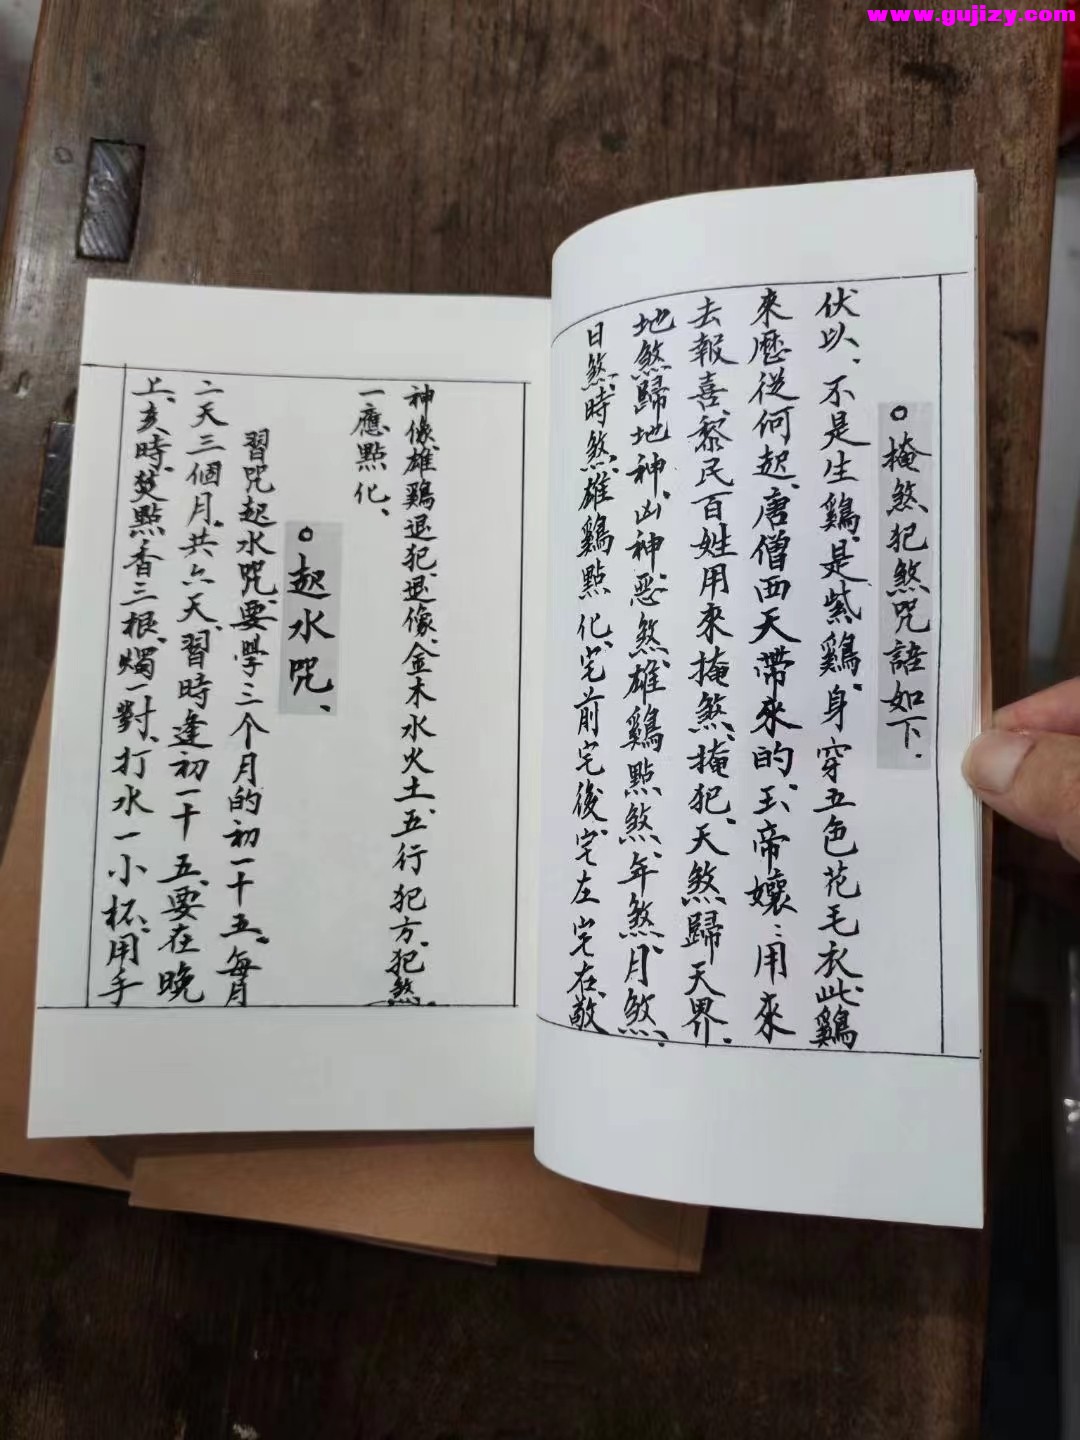 www.gujizy.com
○掩煞犯煞咒語如下.
伏以、不是生鷄、是紫鷄、身穿五色花毛衣、此鷄
來歷從何起、唐僧西天帶來的、王帝孃:用來
去報喜、黎民百姓用來掩煞、掩犯、天煞歸天界、
地煞歸地神、凶神惡煞、雄鷄點煞、年煞、月煞、
日煞、時煞、雄鷄點化、宅前宅後、宅左宅在、敬
神像、雄鷄退犯、退像、金木水火土、五行犯方、犯煞、
一應點化、
○起水咒、
習咒起水咒、要學三个月的初一十五、每月
二天三個月、共六天、習時逢初一十五、要在晚
上、亥時、焚點香三根、燭一對、打水一小杯、用手